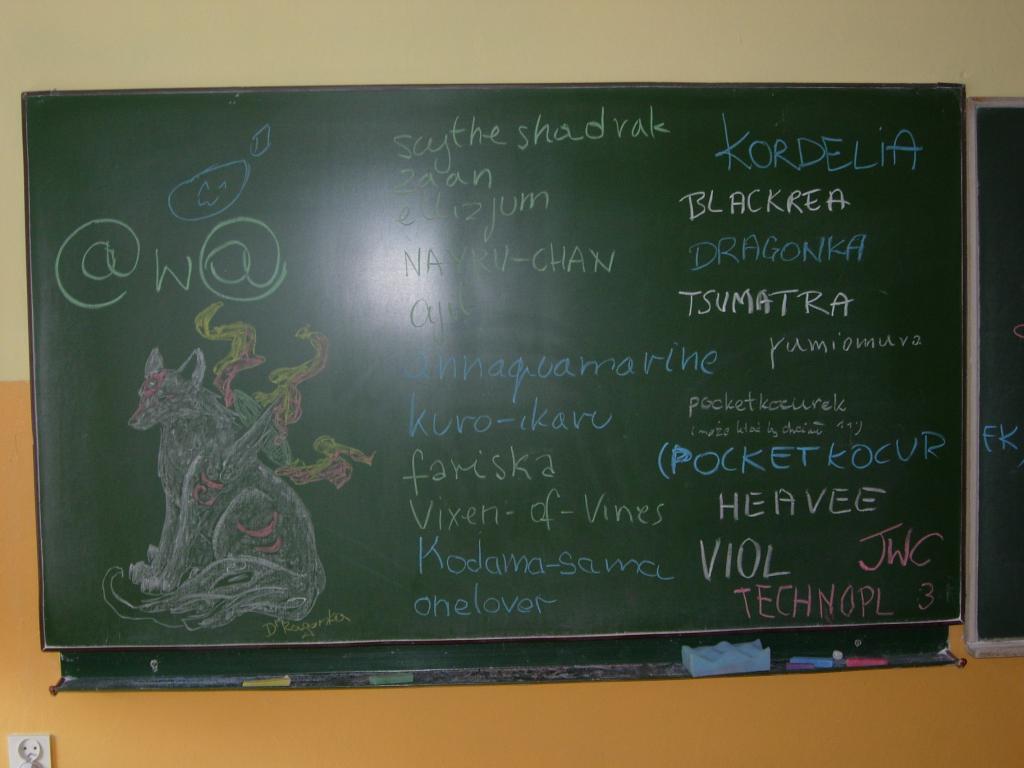 @w@
scytheshadvak
zaan
ellizjum
NAYRU-CHAN
annaquamarine
kuro-ikaru
fariska
Vixen-of-Vines
Kodama-sama
onelover
Dragonka
KORDELIA
BLACKREA
DRAGONKA
TSUMATRA
yumiomura
pocketkocurek
(POCKETKOCUR
HEAVEE
VIOL
JWC
TECHNOPL 3